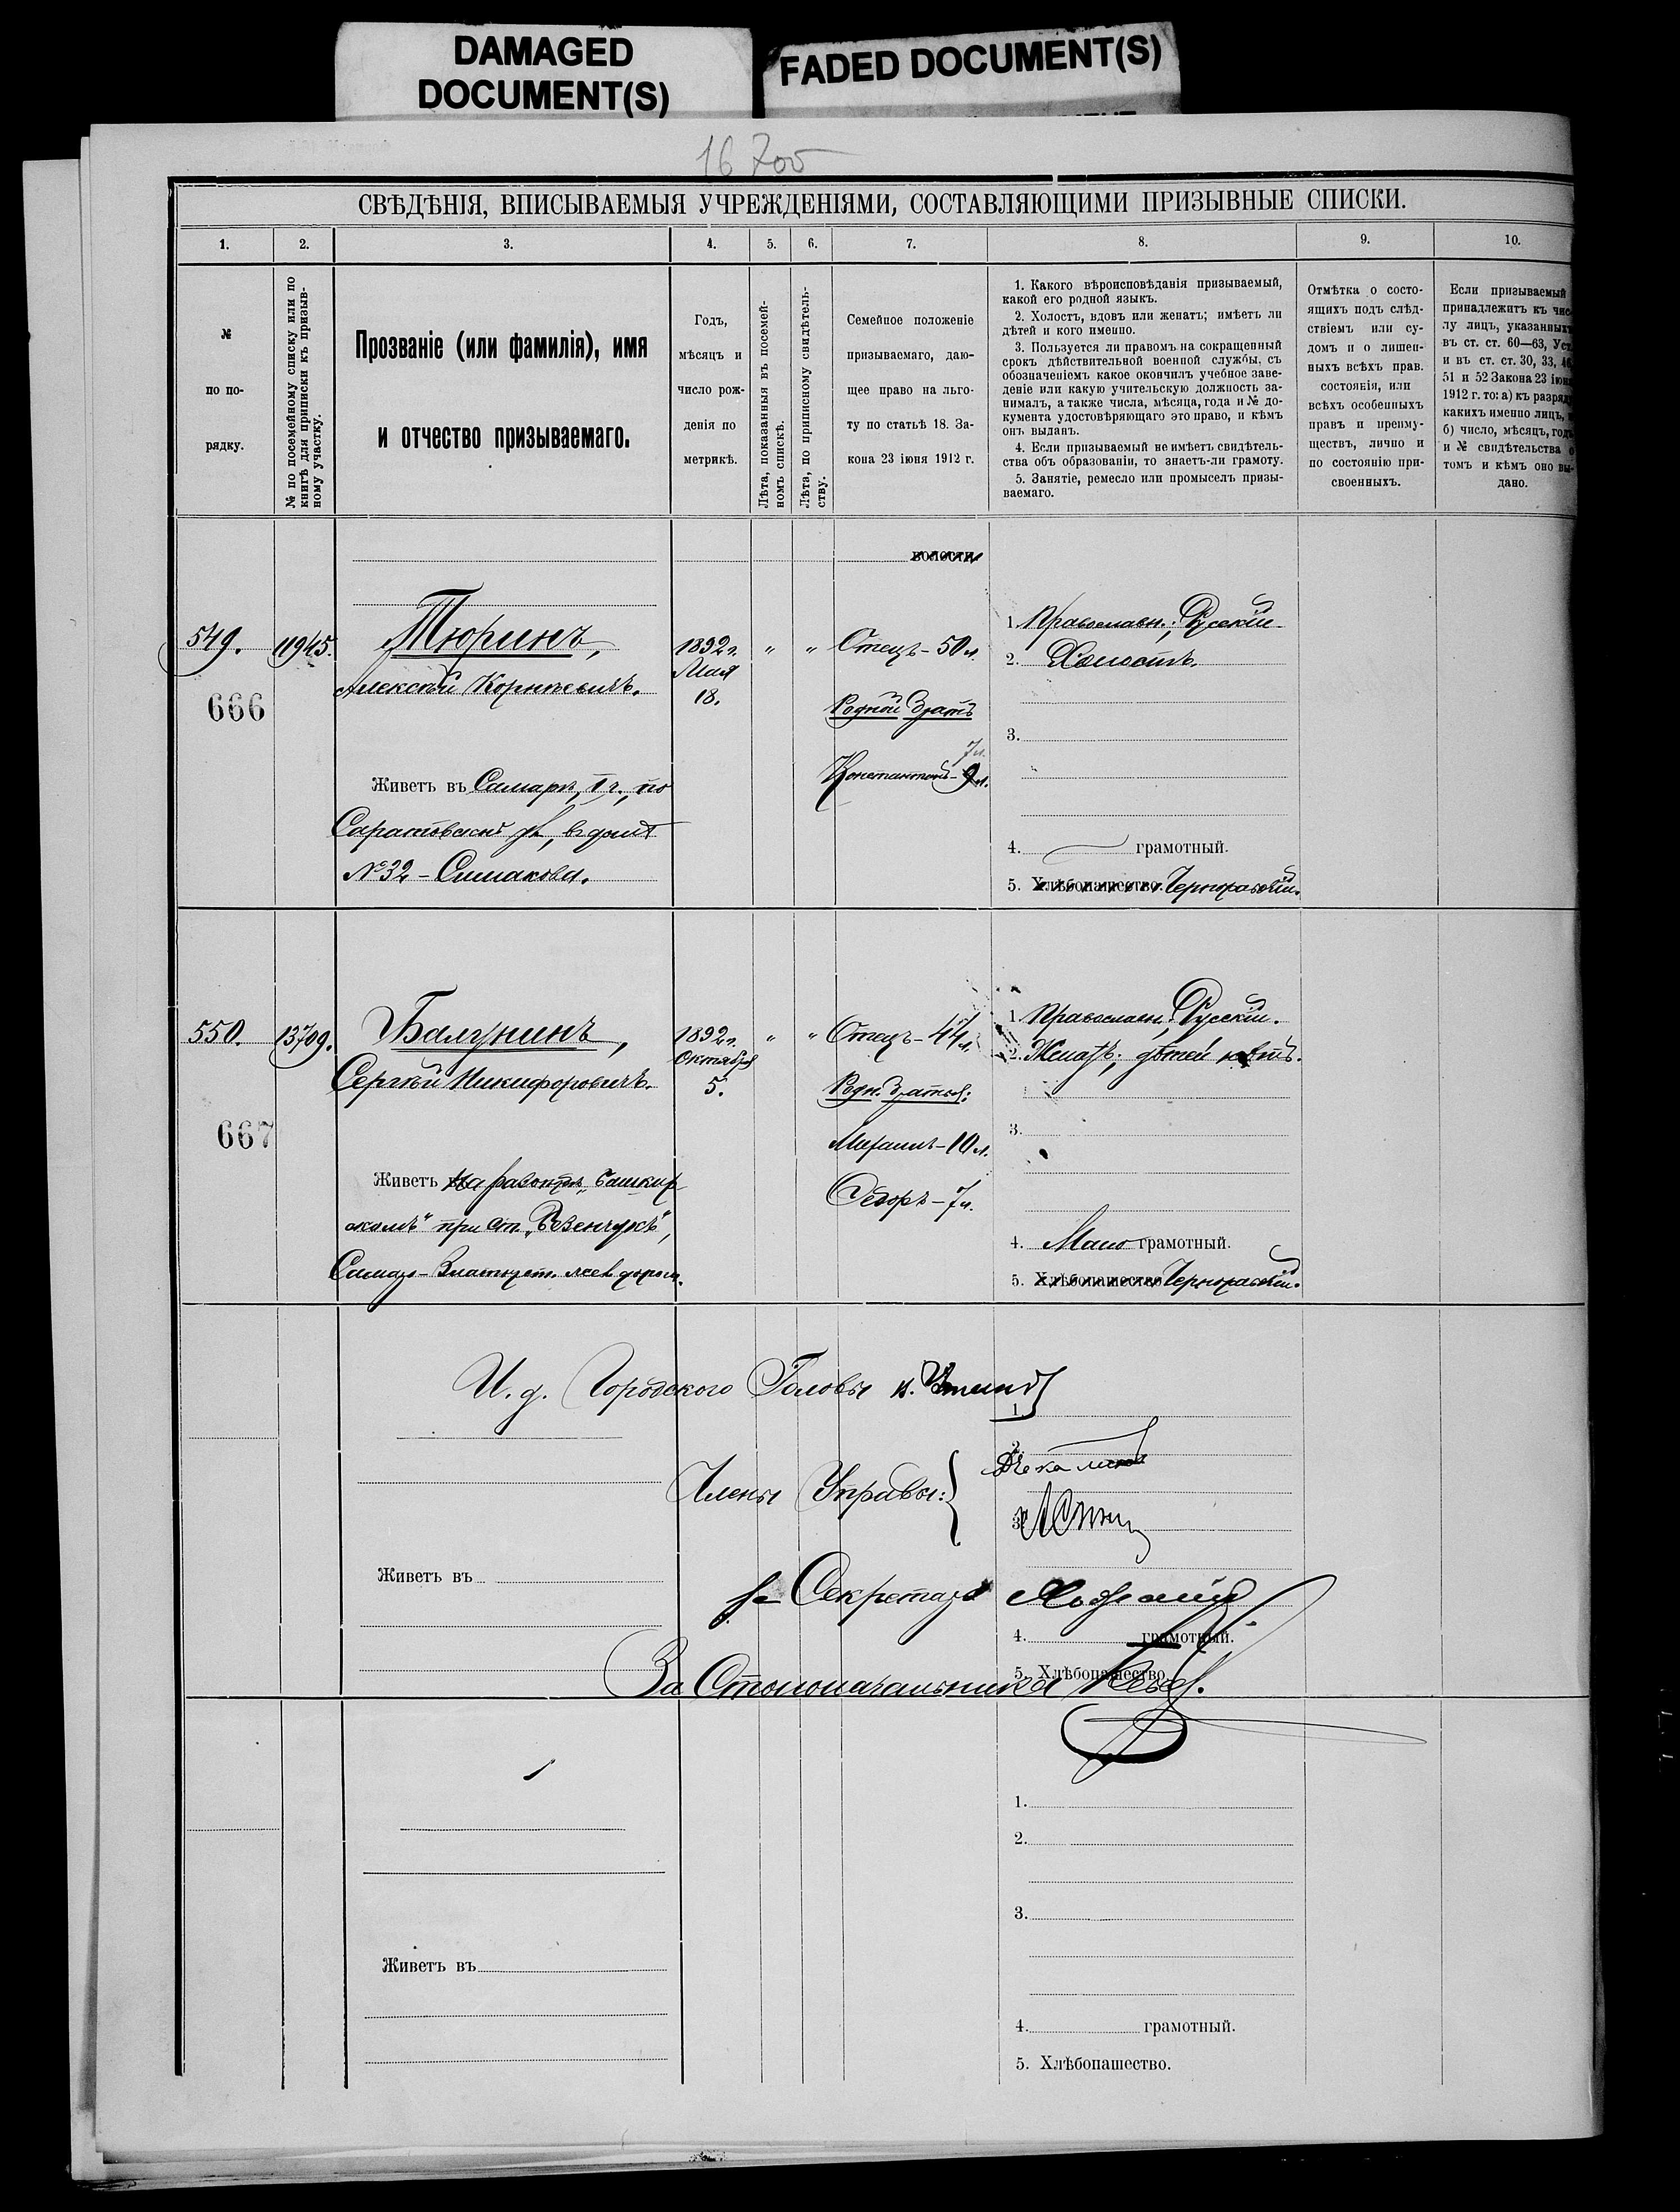 DAMAGED
DOCUMENT(S)
FADED DOCUMENT(S)
16 700
СВѢДѢНІЯ, ВПИСЫВАЕМЫЯ УЧРЕЖДЕНІЯМИ, СОСТАВЛЯЮЩИМИ ПРИЗЫВНЫЕ СПИСКИ.
1. 2. 3. 4. 5. 6. 7. 8. 9. 10.
№
по по-
рядку.
№ по посемейному списку или по
книгѣ для приписки къ призыв-
ному участку.
Прозваніе (или фамилія), имя
и отчество призываемаго.
Годъ,
мѣсяцъ и
число рож-
денія по
метрикѣ.
Лѣта, показанныя въ посемей-
номъ спискѣ.
Лѣта, по приписному свидѣтель-
ству.
Семейное положеніе
призываемаго, даю-
щее право на льго-
ту по статьѣ 18. За-
кона 23 іюня 1912 г.
1. Какого вѣроисповѣданія призываемый,
какой его родной языкъ.
2. Холостъ, вдовъ или женатъ; имѣетъ ли
дѣтей и кого именно.
3. Пользуется ли правомъ на сокращенный
срокъ дѣйствительной военной службы, съ
обозначеніемъ какое окончилъ учебное заве-
деніе или какую учительскую должность за-
нималъ, а также числа, мѣсяца, года и № до-
кумента удостовѣряющаго это право, и кѣмъ
онъ выданъ.
4. Если призываемый не имѣетъ свидѣтель-
ства объ образованіи, то знаетъ-ли грамоту.
5. Занятіе, ремесло или промыселъ призы-
ваемаго.
Отмѣтка о состо-
ящихъ подъ слѣд-
ствіемъ или су-
домъ и о лишен-
ныхъ всѣхъ прав.
состоянія, или
всѣхъ особенныхъ
правъ и преиму-
ществъ, лично и
по состоянію при-
своенныхъ.
Если призываемый
принадлежитъ къ чис
лу лицъ, указанныхъ
въ ст. ст. 60—63, Уст
и въ ст. ст. 30, 33, 46
51 и 52 Закона 23 іюн
1912 г. то: а) къ разряд
какихъ именно лицъ,
б) число, мѣсяцъ, годъ
и № свидѣтельства о
томъ и кѣмъ оно вы-
дано.
волости
549. 11945.
666
Тюринъ,
Алексѣй Корнѣевичъ.
Живетъ въ Самарѣ, I ч., по
Саратовской ул, въ домѣ
№ 32 - Симакова.
1892 г.
Мая
18.
" "
Отецъ - 50 л.
Родной братъ
7 л.
Константинъ - 9 л.
1. Православн.; Русскій
2. Холостъ.
3.
4. грамотный.
5. Хлѣбопашество. Чернорабочій.
550. 13709.
667
Балунинъ,
Сергѣй Никифоровичъ.
Живетъ на работѣ „Башкир
скомъ" при ст. „Безенчукъ",
Самаро-Златоуст. жел дороги.
1892 г.
Октября
5.
" "
Отецъ - 44 л.
Родн. братья:
Михаилъ - 10 л.
Ѳедоръ - 7 л.
1. Православн.; Русскій.
2. Женатъ; дѣтей нѣтъ.
3.
4. Мало грамотный.
5. Хлѣбопашество Чернорабочій.
И. д. Городского Головы
1.
2.
Члены Управы:
3.
Живетъ въ
Секретарь
4. грамотный.
5. Хлѣбопашество.
За Столоначальника
1.
2.
3.
Живетъ въ
4. грамотный.
5. Хлѣбопашество.